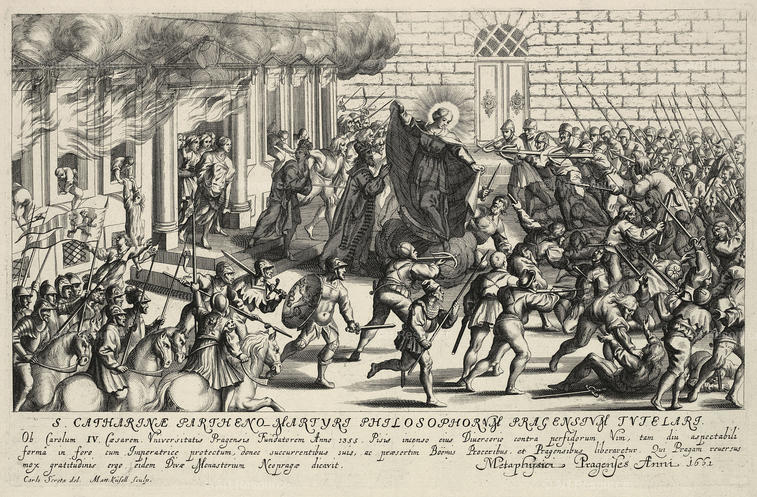 S. CATHARINÆ PARTHENO-MARTYRI PHILOSOPHORVM PRAGENSIVM TVTELARI.
Ob Carolum IV. Cæsarem. Vniversitatis Pragensis Fundatorem Anno 1355. Pisis incenso eius Diversorio contra perfidorum Vim, tam diu aspectabili
formâ in foro cum Imperatrice protectum, donec succurrentibus suis, ac præsertim Boëmis Proceribus et Pragensibus liberaretur. Qui Pragam reversus
mox gratitudinis ergo eidem Divæ Monasterium Neopragæ dicavit. Metaphysici Pragenses Anni 1661
Carls Screta del. Matt. Küsell sculp.